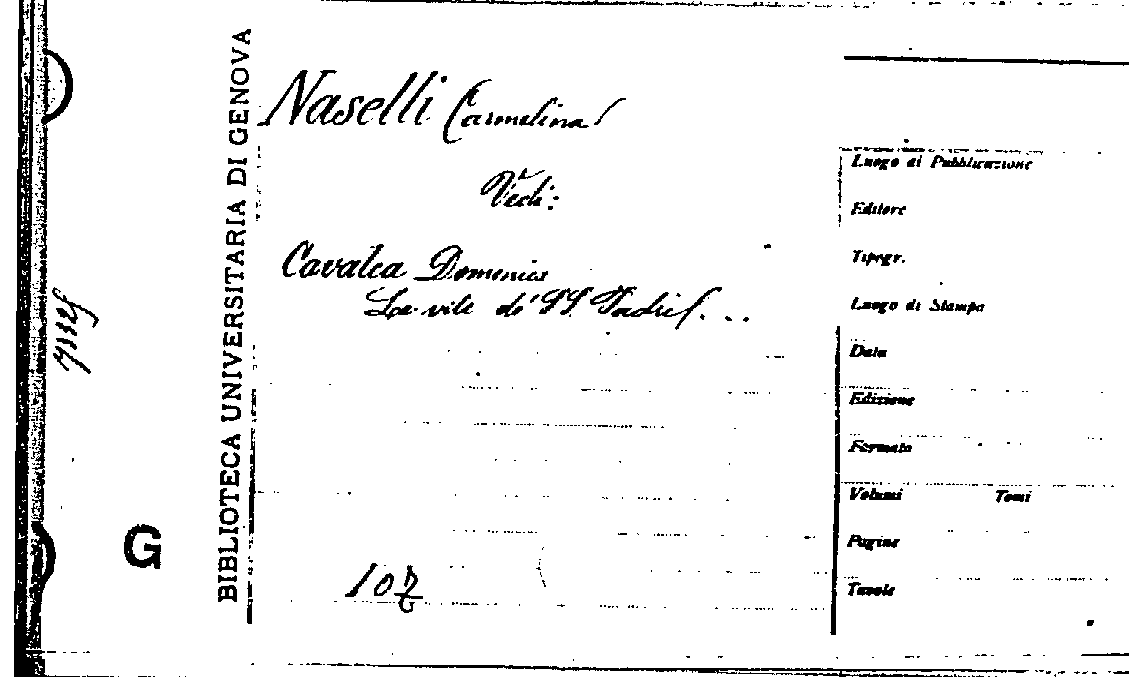 BIBLIOTECA UNIVERSITARIA DI GENOVA
G
Naselli Carmelina
Vedi:
Cavalca Domenico
Le vite de' SS. Padri. ..
107
Luogo di Pubblicazione
Editore
Tipogr.
Luogo di Stampa
Data
Edizione
Formato
Volumi Tomi
Pagine
Tavole